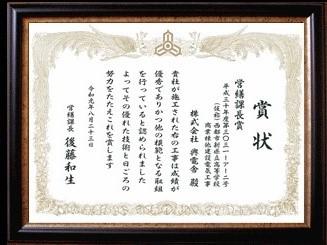 賞状
営繕課長賞
平成三十年度第三〇三一ーアー二号
(仮称)西都市新県立高等学校
商業棟他建設電気工事
株式会社 興電舎 殿
貴社が施工された右の工事は成績が
優秀でありかつ他の模範となる取組
を行っていると認められました
よってその優れた技術と日ごろの
努力をたたえこれを賞します
令和元年八月二十三日
営繕課長 後藤和生